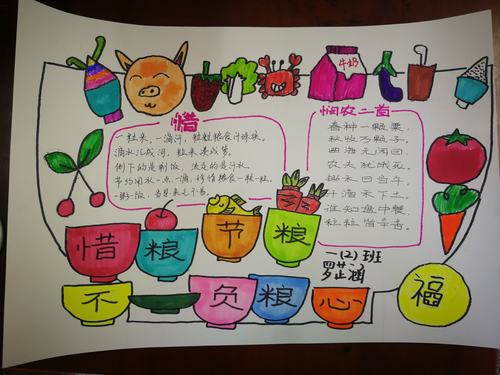 牛奶
惜
一粒米,一滴汗,粒粒粮食汗珠换。
滴水汇成河,粒米凑成箩。
倒下的是剩饭,流走的是汗水。
节约用水一点一滴,珍惜粮食一粒一粒。
一粥一饭,当思来之不易。
悯农二首
春种一颗粟,
秋收万颗子。
四海无闲田,
农夫犹饿死。
锄禾日当午,
汗滴禾下土。
谁知盘中餐,
粒粒皆辛苦。
一(2)班
惜粮节粮
不负粮心
福